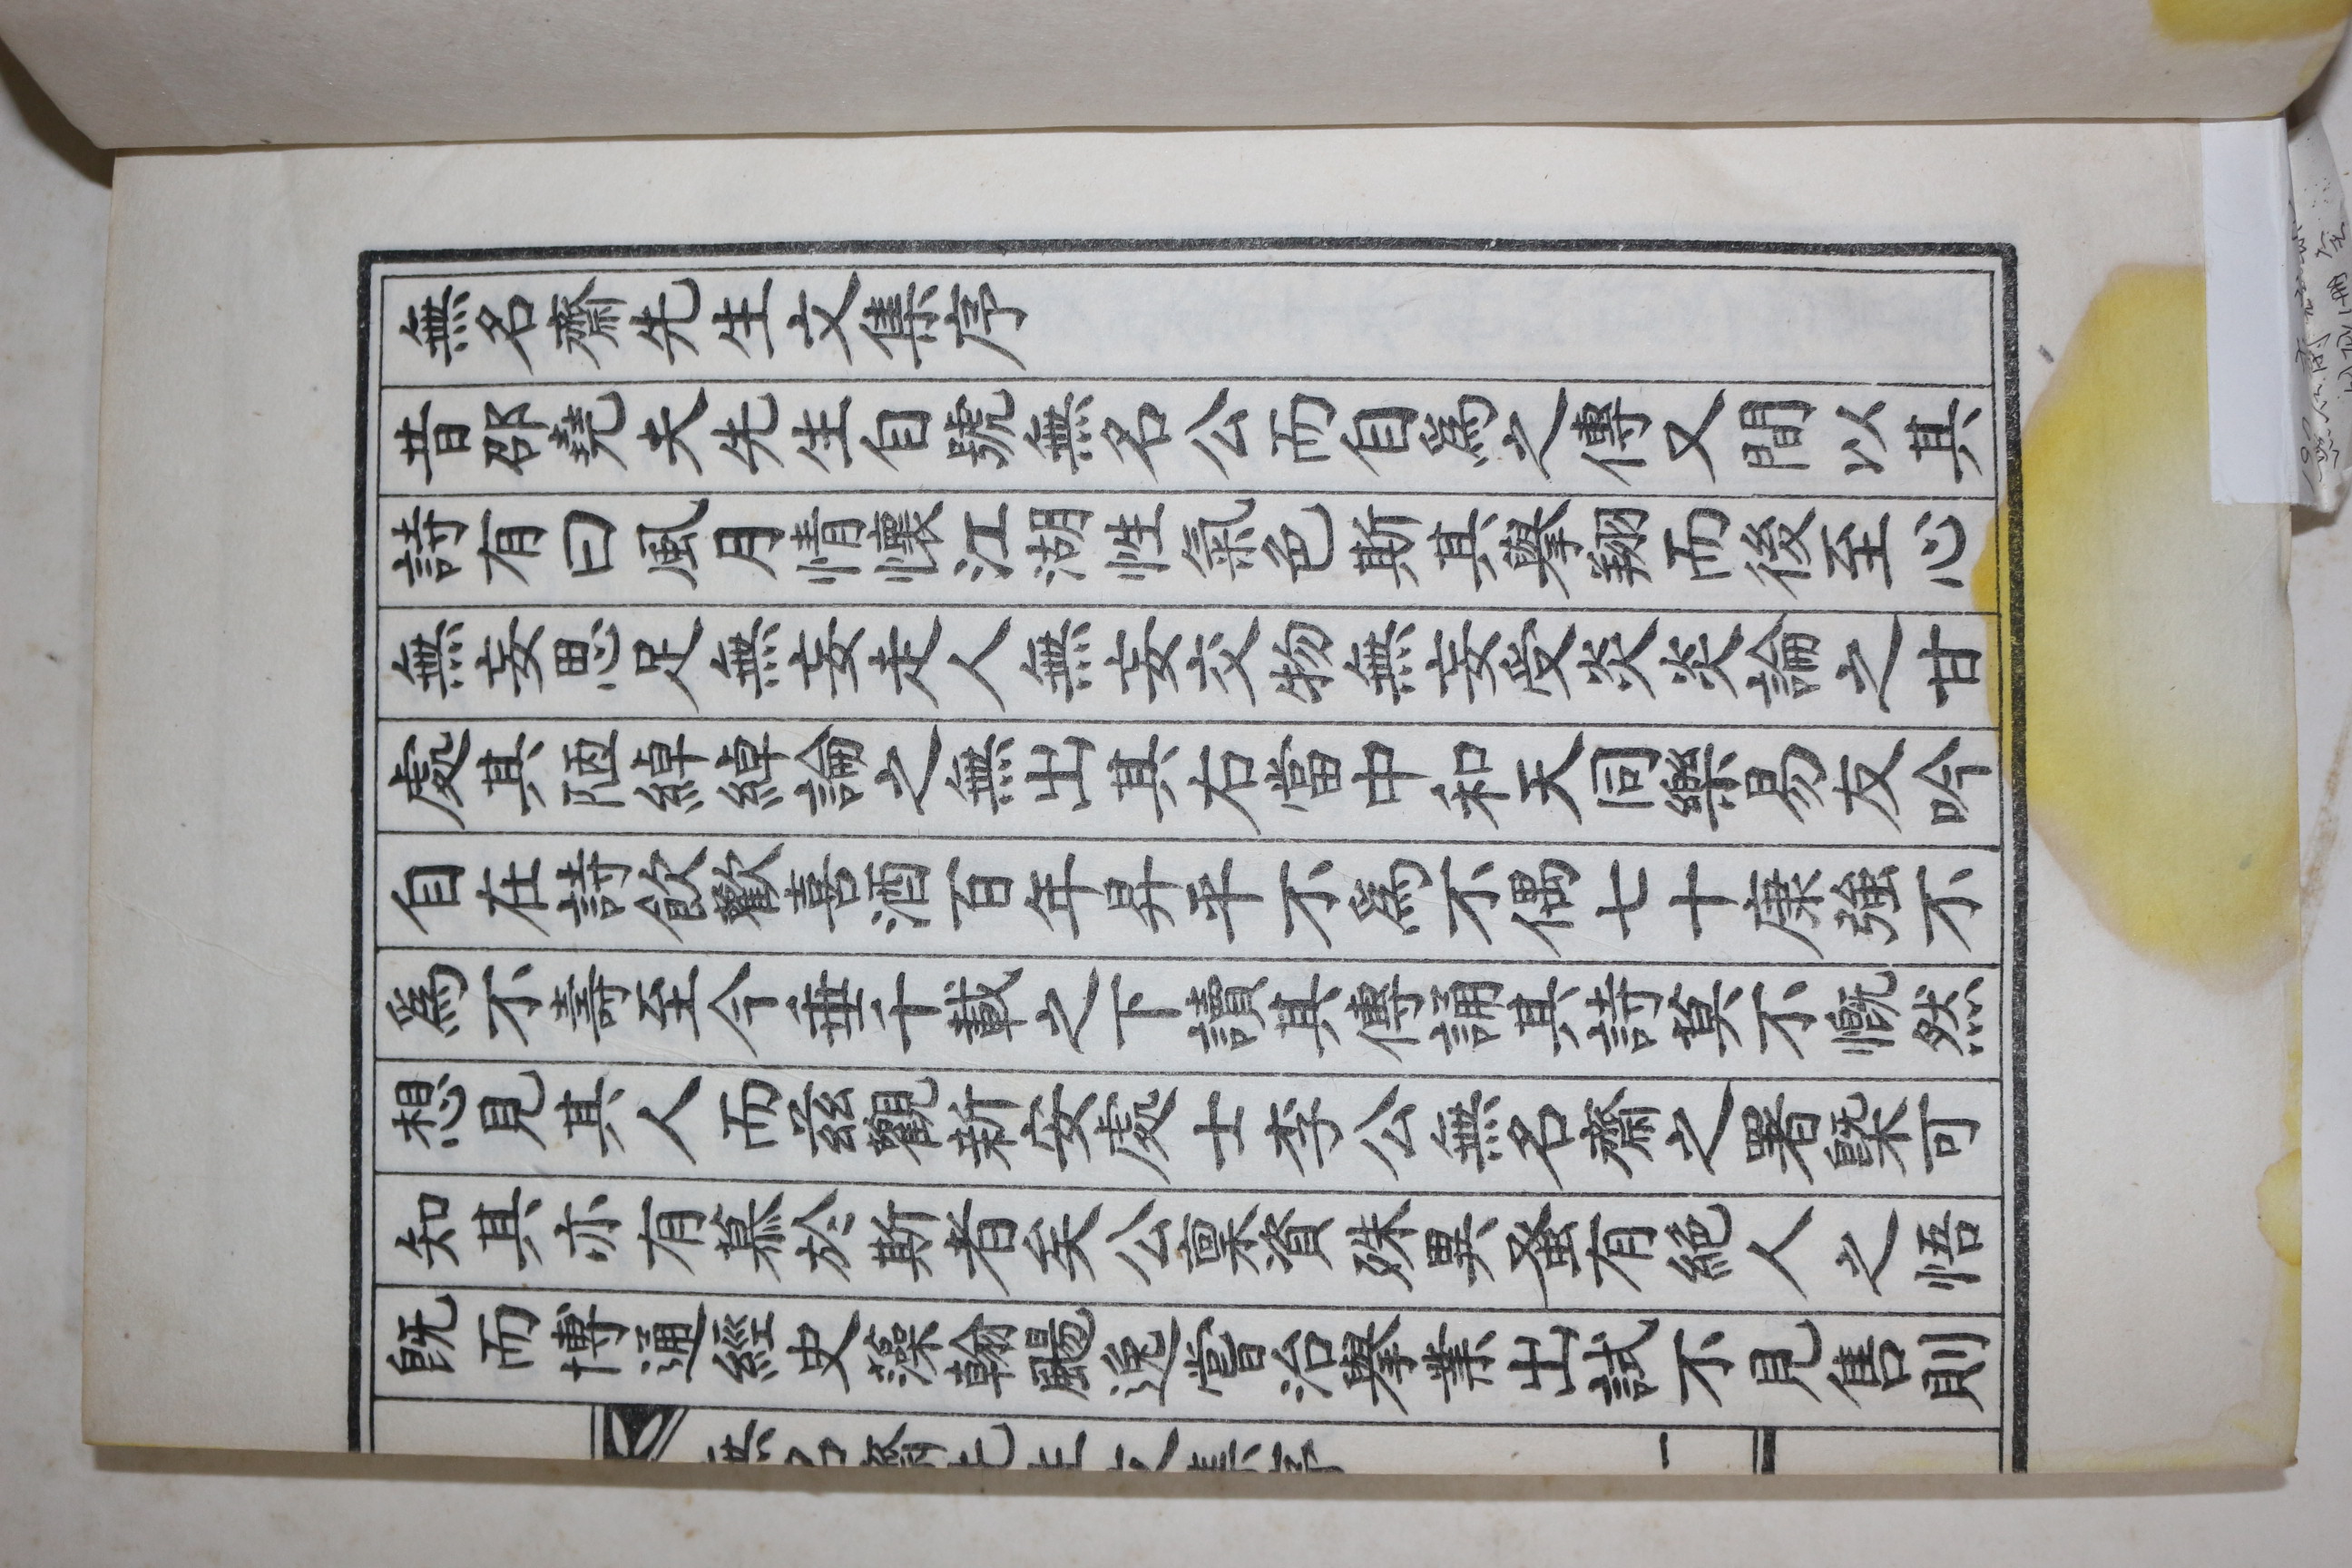 無名齋先生文集序
昔邵堯夫先生自號無名公而自爲之傳又間以其
詩有曰風月情懷江湖性氣色斯其擧翔而後至心
無妄思足無妄走人無妄交物無妄受炎炎論之甘
處其陋綽綽論之無出其右當中和天同樂易友吟
自在詩飮歡喜酒百年昇平不爲不偶七十康強不
爲不壽至今垂千載之下讀其傳誦其詩莫不慨然
想見其人而茲觀新安處士李公無名齋之署槩可
知其亦有慕於斯者矣公稟資殊異蚤有絕人之悟
旣而博通經史藻翰颺逸嘗治擧業出試不見售則
無名齋先生文集序 一